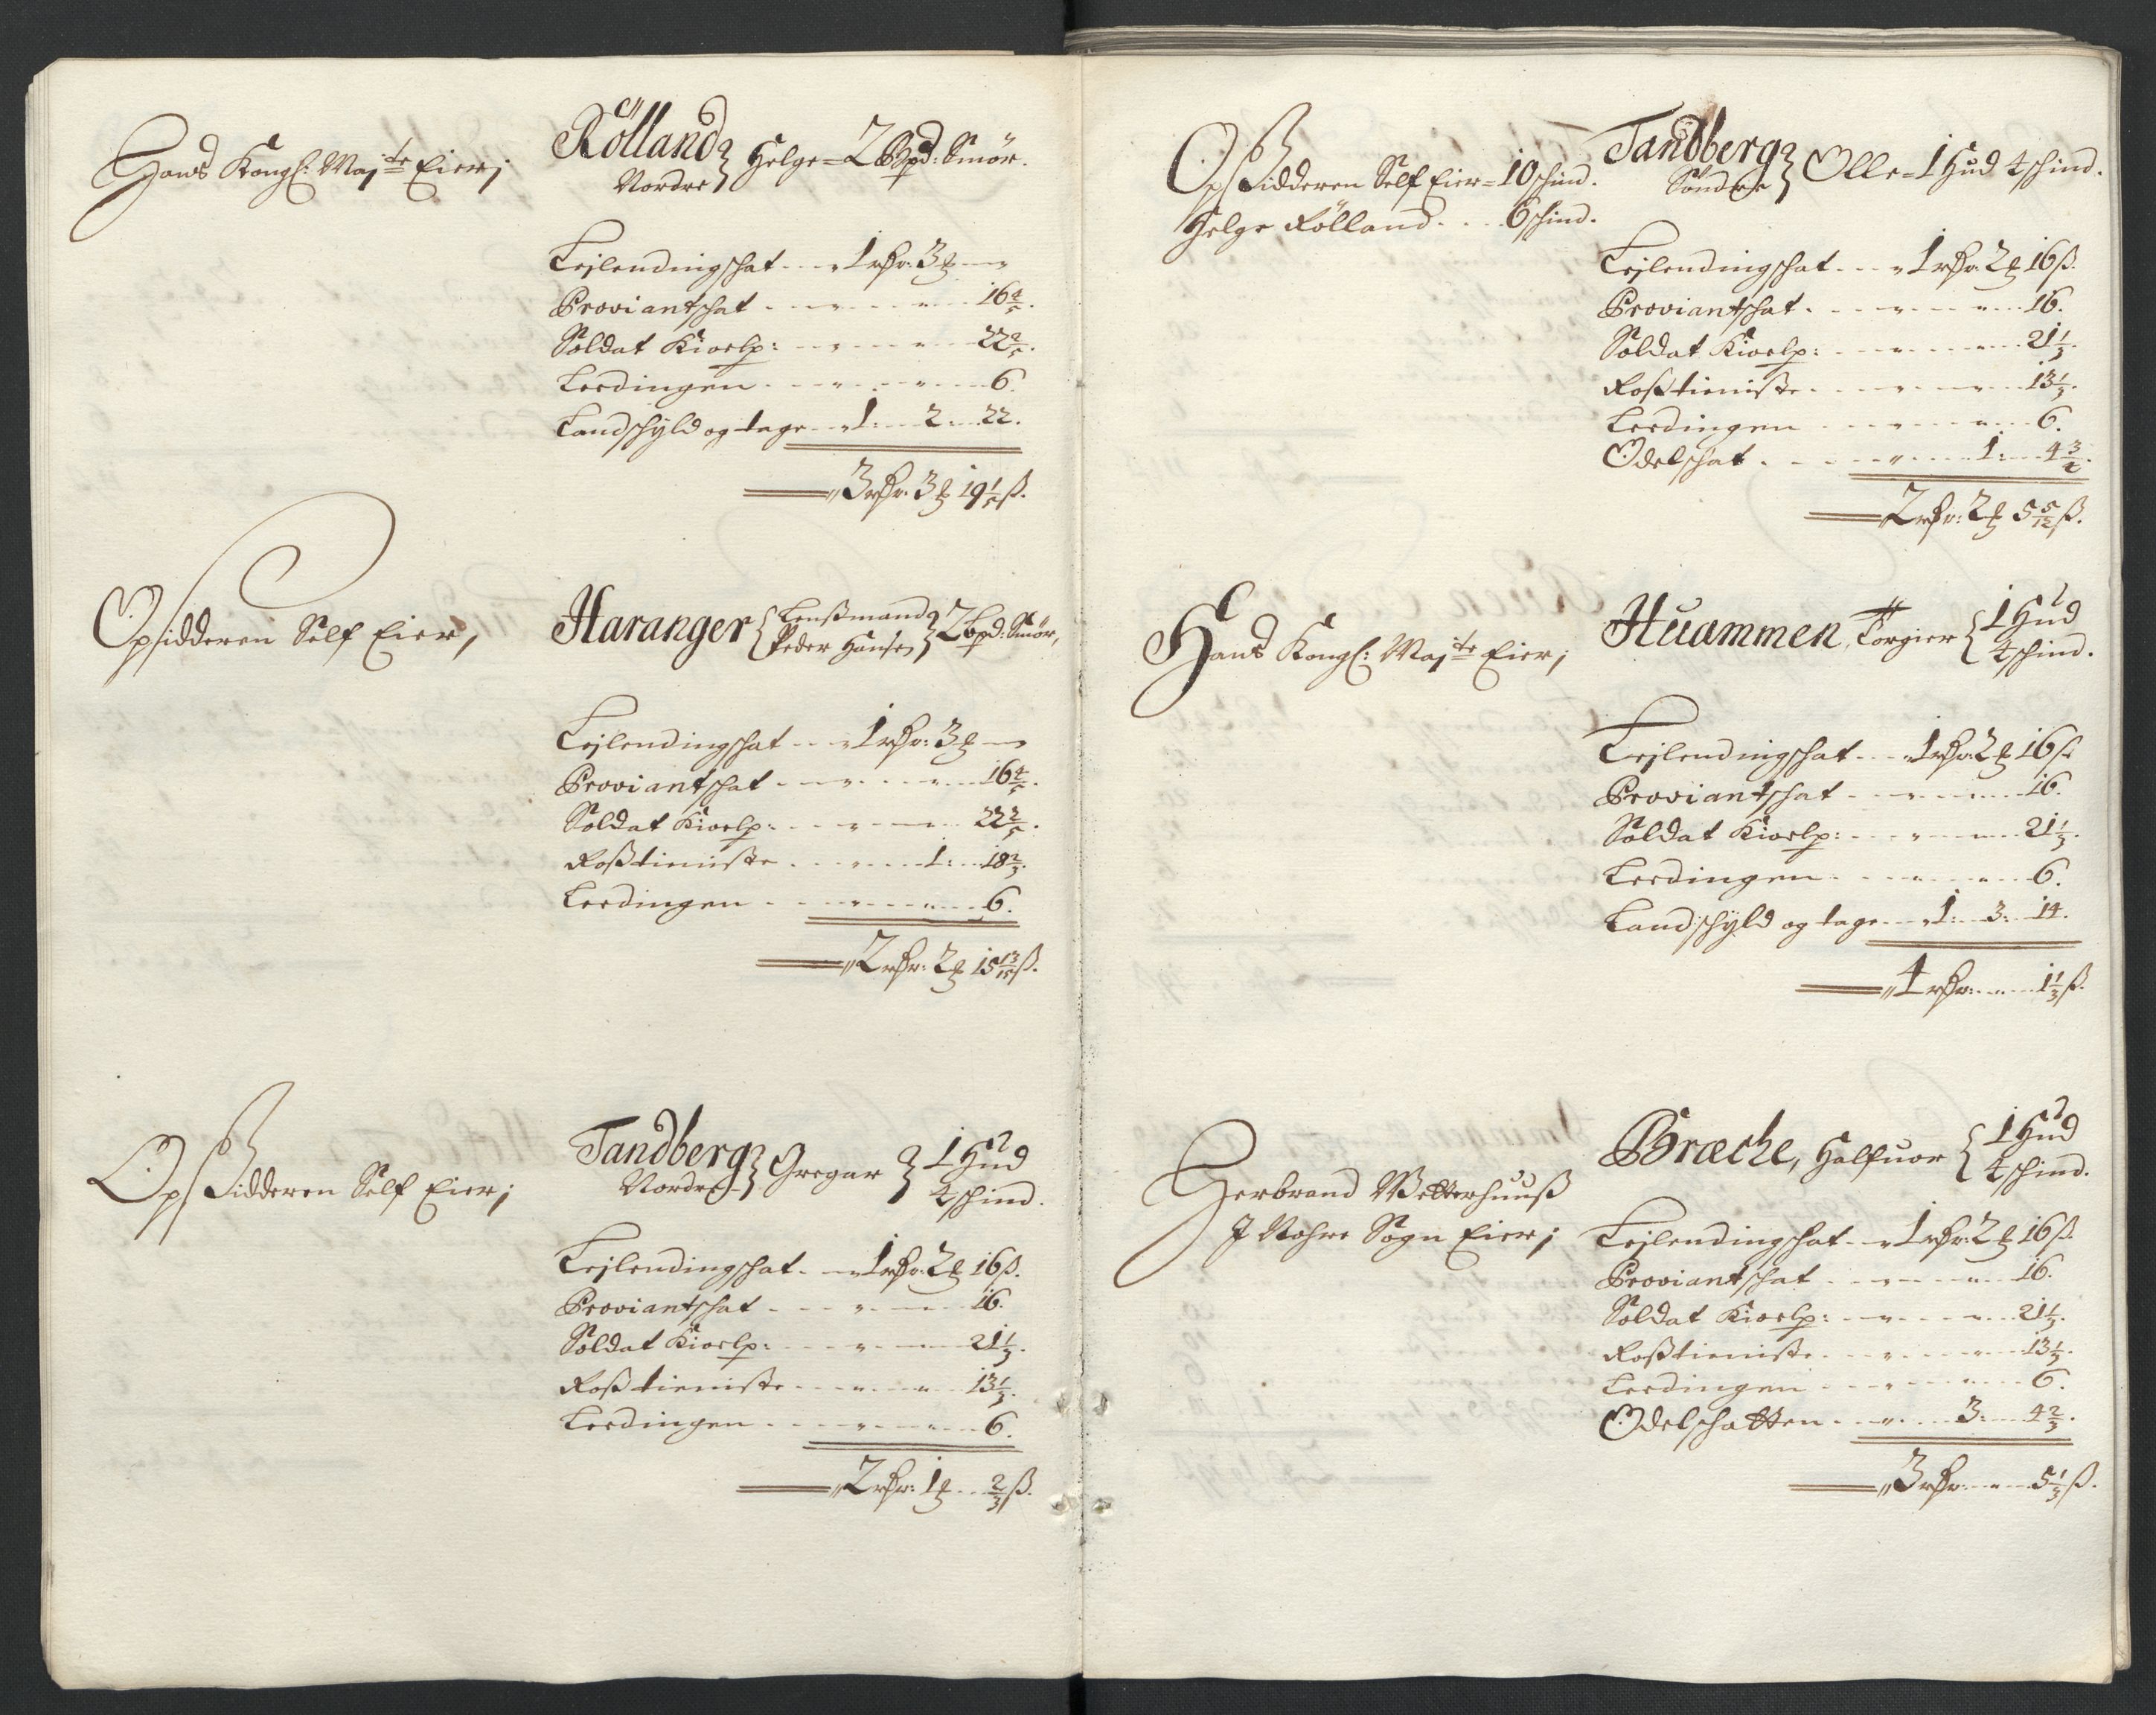 Hans Kongl: Maj:te Eier;
Rölland Nordre } Helge = 2 Bpd: Smör.
Lejlendingschat - - - 1 rdr: 3 ℔ -
Proviantschat - - - 16 4/5.
Soldat Kioelp: - - - 22 2/5.
Leedingen - - - 6.
Landschyld og tage - - 1: - 2 - 22.
3 rdr. 3 ℔ 19 1/5 ß.
Opsidderen Self Eier,
Haranger { Lensmand Peder Hansen } 2 bpd: Smör,
Lejlendingschat - - - 1 rdr: 3 ℔ -
Proviantschat - - - 16 4/5.
Soldat Kioelp: - - - 22 2/5.
Rosstieniste - - - 1: - 18 2/3.
Leedingen - - - 6.
2 rdr: 2 ℔ 15 13/15 ß.
Opsidderen Self Eier;
Tandberg Nordre } Gregar } 1 Hud 4 schind.
Lejlendingschat - - - 1 rdr: 2 ℔ 16 ß.
Proviantschat - - - 16.
Soldat Kioelp: - - - 21 1/3.
Rosstieniste - - - 13 1/3.
Leedingen - - - 6.
2 rdr: 1 ℔ - 2/3 ß.
Opsidderen Self Eier = 10 schind.
Helge Rölland - - - 6 schind.
Tandberg Söndre } Olle = 1 Hud 4 schind.
Lejlendingschat - - - 1 rdr 2 ℔ 16 ß.
Proviantschat - - - 16.
Soldat Kioelp: - - - 21 1/3.
Rosstieniste - - - 13 1/3.
Leedingen - - - 6.
Odelschat - - - 1: - 4 3/4.
2 rdr: 2 ℔ 5 5/12 ß.
Hans Kongl: Maj:te Eier;
Huammen, Torgier { 1 Hud 4 schind.
Lejlendingschat - - - 1 rdr: 2 ℔ 16 ß
Proviantschat - - - 16.
Soldat Kioelp: - - - 21 1/3.
Leedingen - - - 6.
Landschyld og tage - - 1: - 3: - 14.
4 rdr: - - 1 1/3 ß.
Herbrand Wetterhuuß
J Nohre Sogn Eier;
Bræche, Halfuor { 1 Hud 4 schind.
Lejlendingschat - - 1 rdr: 2 ℔ 16 ß.
Proviantschat - - - 16.
Soldat Kioelp: - - - 21 1/3.
Rosstieniste - - - 13 1/3.
Leedingen - - - 6.
Odelschatten - - - 3: - 4 2/3.
3 rdr: - - 5 1/3 ß.